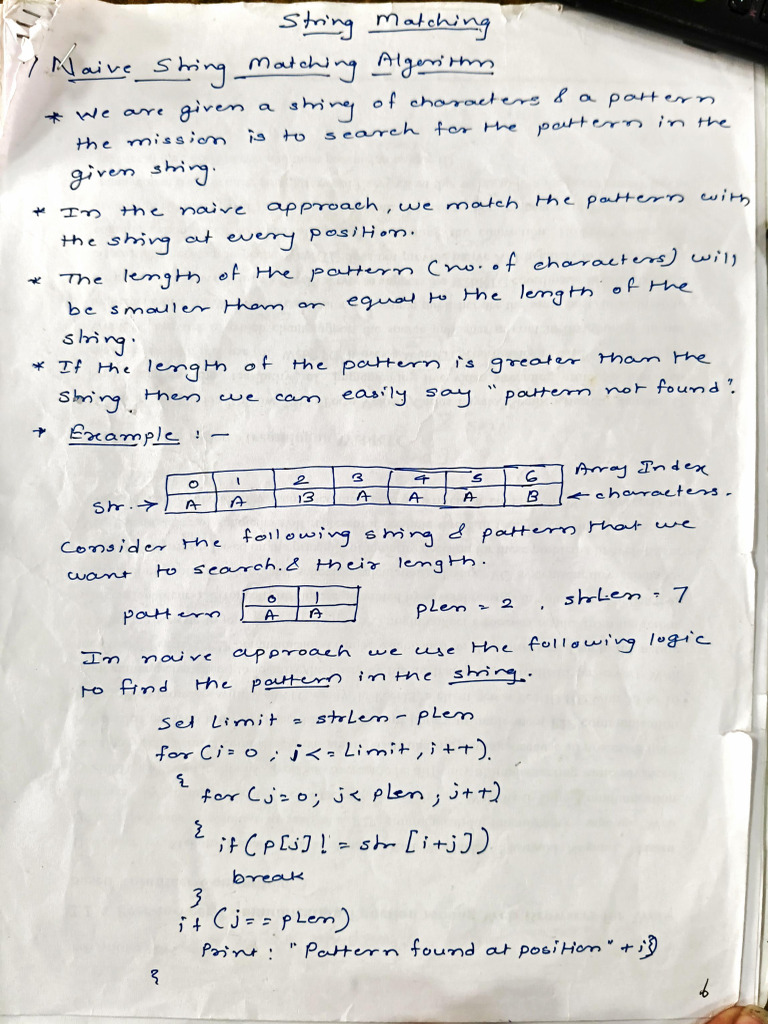 String Matching
1) Naive String Matching Algorithm
* We are given a string of characters & a pattern
the mission is to search for the pattern in the
given string.
* In the naive approach, we match the pattern with
the string at every position.
* The length of the pattern (no. of characters) will
be smaller than or equal to the length of the
string.
* If the length of the pattern is greater than the
string then we can easily say "pattern not found".
* Example : -
0 1 2 3 4 5 6 Array Index
Str. → A A B A A A B ← characters.
Consider the following string & pattern that we
want to search. & their length.
0 1
pattern A A pLen = 2 , strLen = 7
In naive approach we use the following logic
to find the pattern in the string.
Set Limit = strLen - pLen
for (i = 0 ; j <= Limit , i++).
{
for (j = 0 ; j < pLen ; j++)
{
if (p[j] != str [i+j])
break
}
if (j == pLen)
Print : "Pattern found at position" + i)
{
6